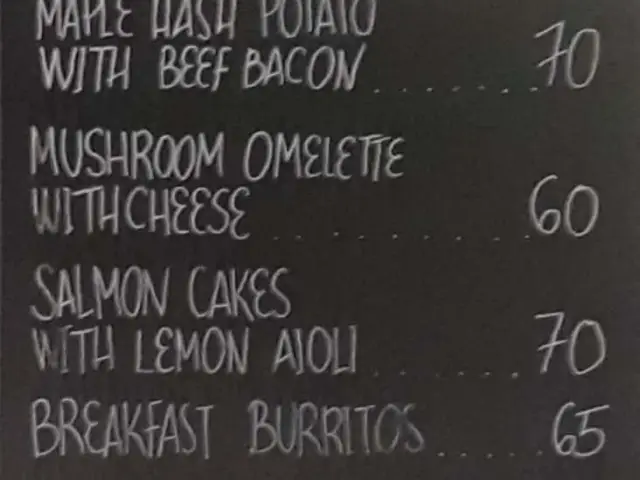 MAPLE HASH POTATO
WITH BEEF BACON ........ 70
MUSHROOM OMELETTE
WITH CHEESE ........ 60
SALMON CAKES
WITH LEMON AIOLI ....... 70
BREAKFAST BURRITOS ..... 65